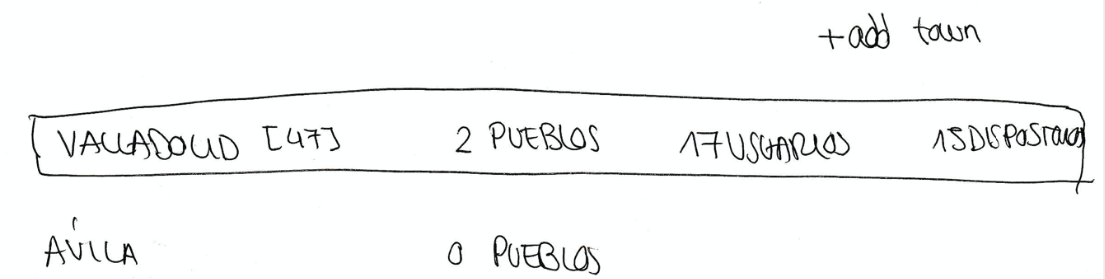 +add town
VALLADOLID [47] 2 PUEBLOS 17 USUARIOS 15 DISPOSITIVOS
ÁVILA 0 PUEBLOS